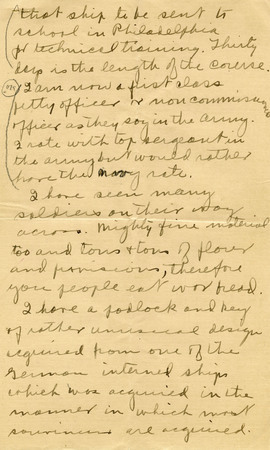 that ship to be sent to
school in Philadelphia
for technical training. Thirty
days is the length of the course.
I am now a first class
petty officer or non commissioned
officer as they say in the Army.
I rate with top sergeant in
the army but would rather
have the navy rate.
I have seen many
soldiers on their way
across. Mighty fine material
too and tons & tons of flour
and provisions, therefore
you people eat war bread.
I have a padlock and key
of rather unusual design
acquired from one of the
German interned ships
which was acquired in the
manner in which most
souvenirs are acquired.